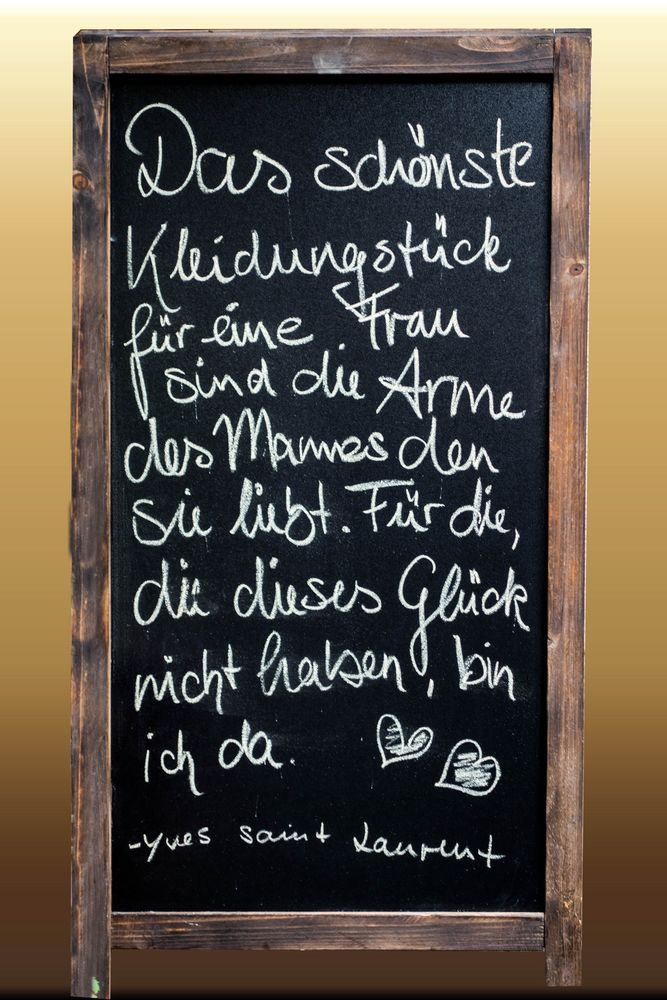 Das schönste
Kleidungstück
für eine Frau
sind die Arme
des Mannes den
sie liebt. Für die,
die dieses Glück
nicht haben, bin
ich da.
-Yves Saint Laurent